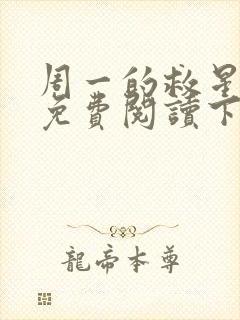 周一的救星
免費閱讀下
龍帝本尊